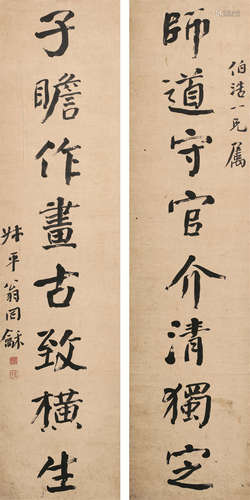 伯浩一兄属
師道守官介清獨定
子瞻作畫古致橫生
叔平翁同龢